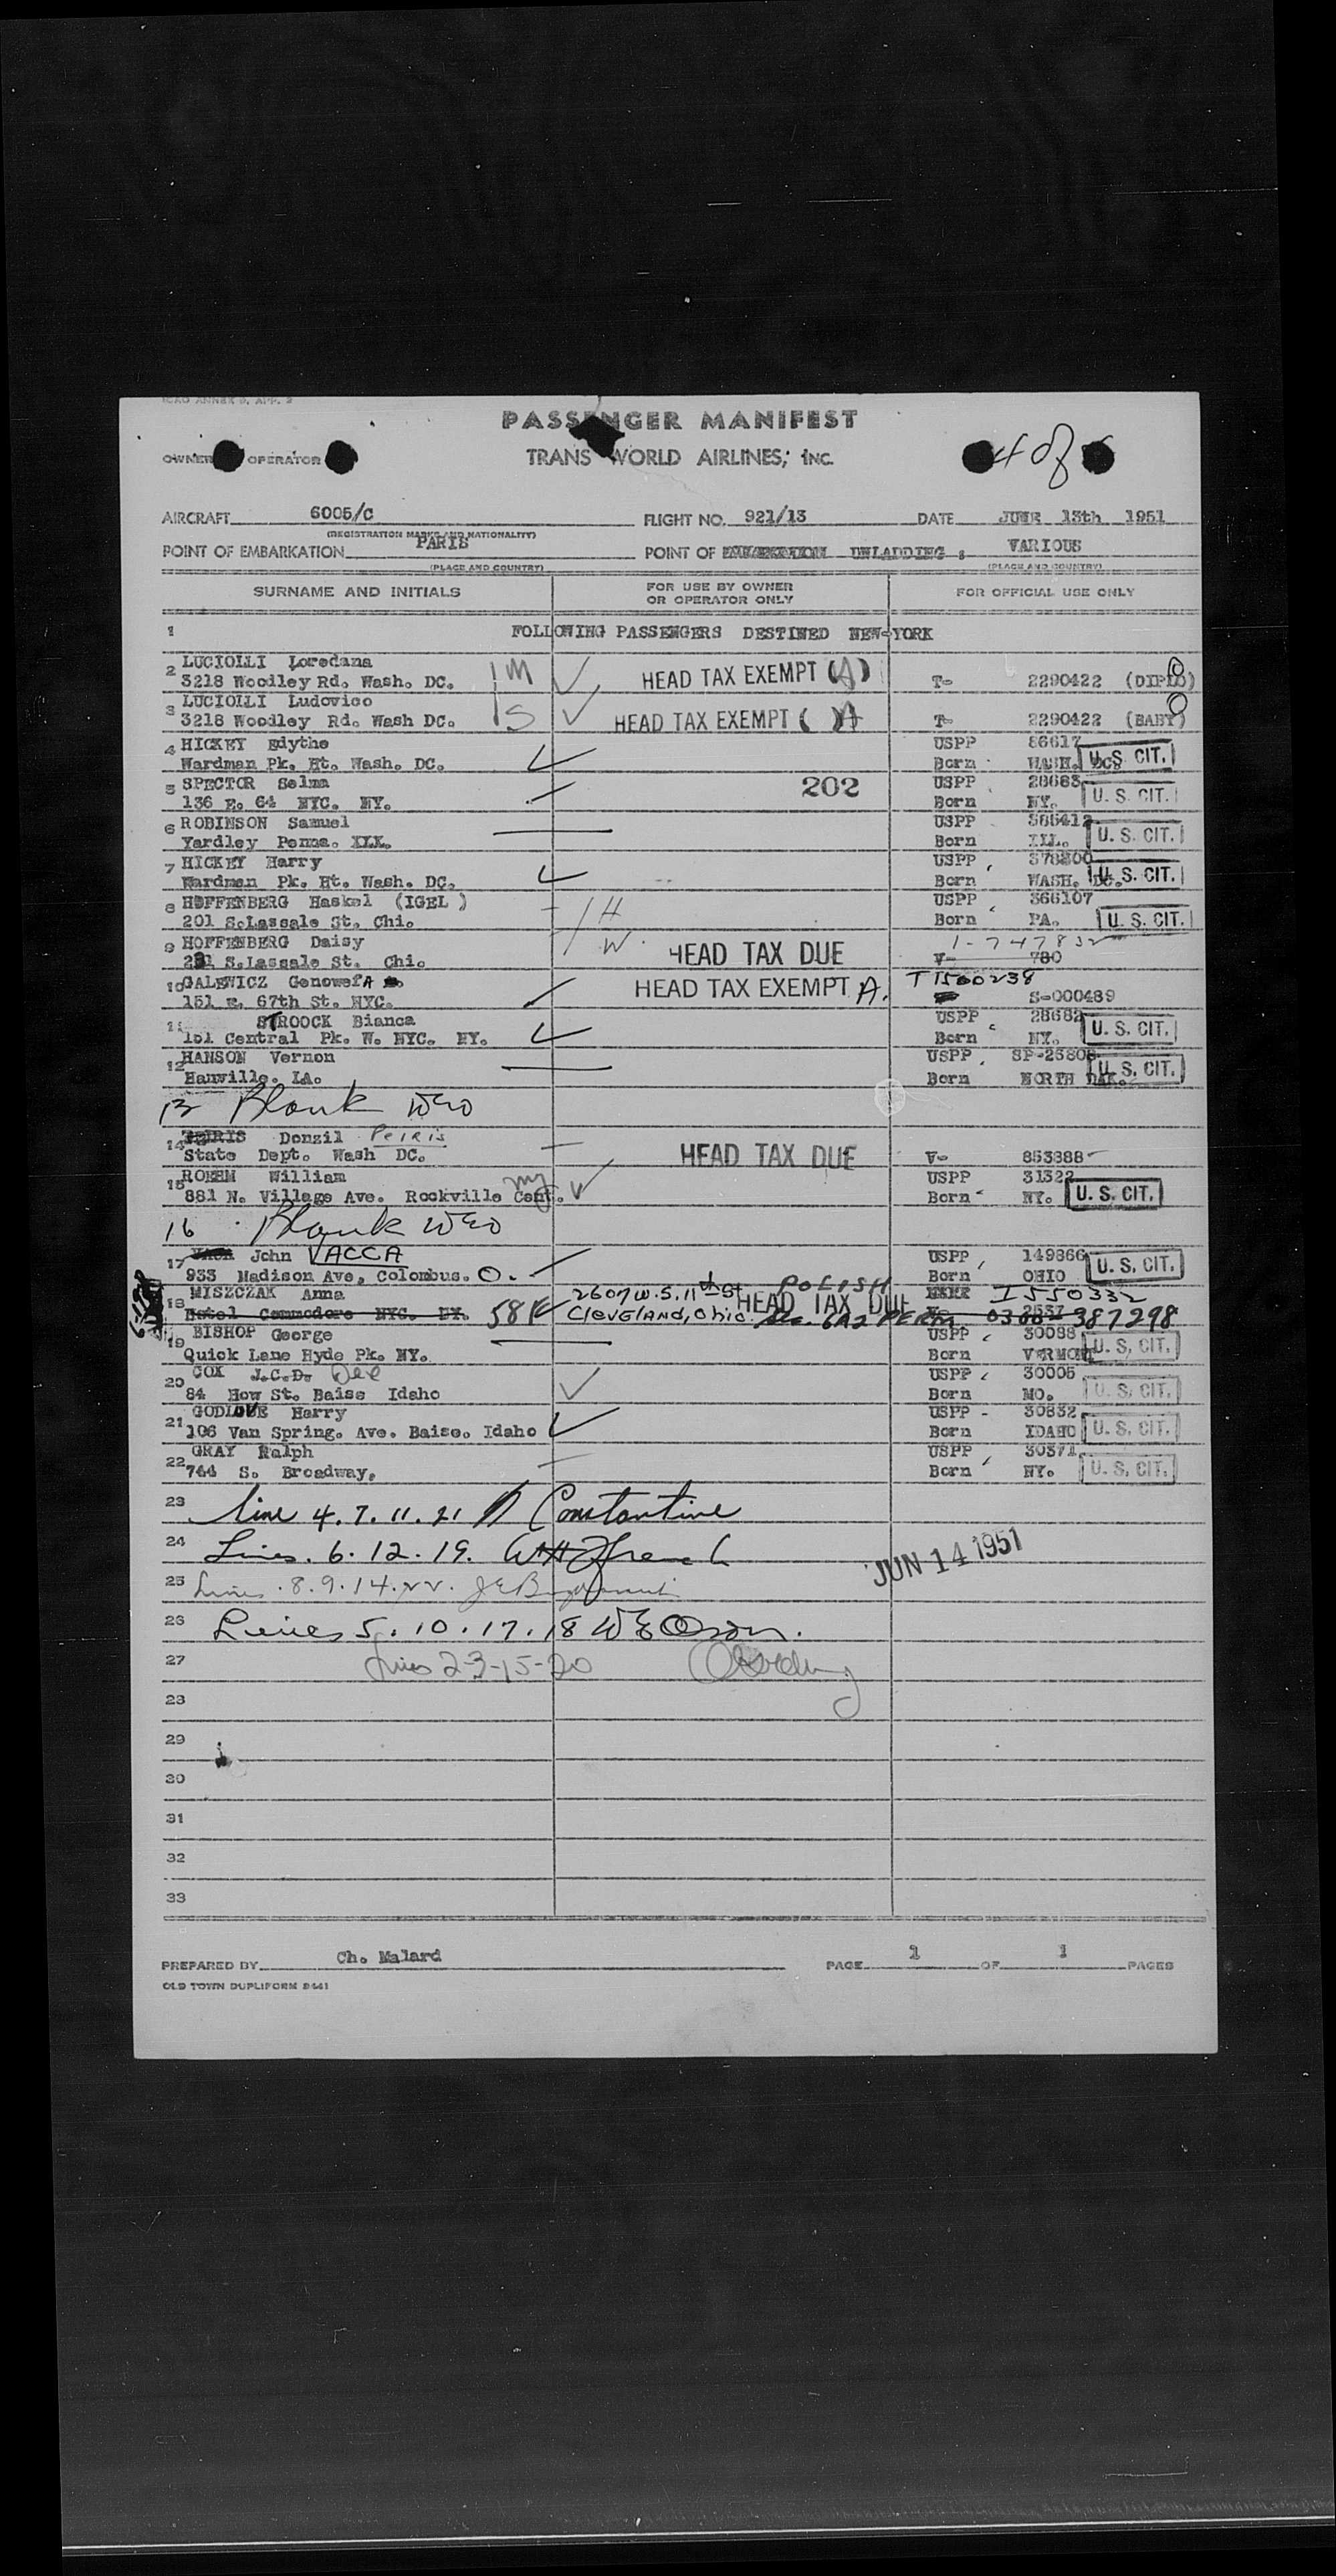 ICAO ANNEX 9, APP. 2
PASSENGER MANIFEST
OWNER OPERATOR TRANS WORLD AIRLINES, INC. 4 of
AIRCRAFT 6005/C FLIGHT NO. 921/13 DATE JUNE 13th 1951
(REGISTRATION MARKS AND NATIONALITY)
POINT OF EMBARKATION PARIS POINT OF UNLADDING : VARIOUS
(PLACE AND COUNTRY) (PLACE AND COUNTRY)
SURNAME AND INITIALS FOR USE BY OWNER OR OPERATOR ONLY FOR OFFICIAL USE ONLY
1 FOLLOWING PASSENGERS DESTINED NEW-YORK
2 LUCIOLLI Loredana M HEAD TAX EXEMPT (A)
3218 Woodley Rd. Wash. DC. T- 2290422 (DIPLO)
3 LUCIOLLI Ludovico S HEAD TAX EXEMPT ( ) A
3218 Woodley Rd. Wash DC. T- 2290422 (BABY)
4 HICKEY Edythe USPP 86617
Wardman Pk. Ht. Wash. DC. Born WASH. DC. U. S. CIT.
5 SPECTOR Selma 202 USPP 28683
136 E. 64 NYC. NY. Born NY. U. S. CIT.
6 ROBINSON Samuel USPP
Yardley Penna. Born ILL. U. S. CIT.
7 HICKEY Harry USPP 378200
Wardman Pk. Ht. Wash. DC. Born WASH. DC. U. S. CIT.
8 HOFFENBERG Haskel (IGEL ) H USPP 366107
201 S.Lassale St. Chi. Born PA. U. S. CIT.
9 HOFFENBERG Daisy W. HEAD TAX DUE
S.Lassale St. Chi. V- 780
10 GALEWICZ GenowefA HEAD TAX EXEMPT A. T1500238
151 E. 67th St. NYC. S-000489
11 STROOCK Bianca USPP 28682
151 Central Pk. W. NYC. NY. Born NY. U. S. CIT.
12 HANSON Vernon USPP SP-25808
Hanville. IA. Born NORTH DAK. U. S. CIT.
13 Blank WEO
14 Denzil Peiris HEAD TAX DUE
State Dept. Wash DC. V- 853888
15 ROEHM William USPP 31322
881 N. Village Ave. Rockville Cent. NY Born NY. U. S. CIT.
16 Blank WEO
17 John VACCA USPP 149866
933 Madison Ave, Colombus. O. Born OHIO U. S. CIT.
18 MISZCZAK Anna 2607 W. S. 11th St POLISH I550332
Hotel Commodore NYC. NY. 58 F Cleveland, Ohio. HEAD TAX DUE Sec. 6A2 PERM 2537 387298
19 BISHOP George USPP 30088
Quick Lane Hyde Pk. NY. Born VERMONT U. S. CIT.
20 COX J.C.D. Dee USPP 30005
84 How St. Baise Idaho Born MO. U. S. CIT.
21 GODLOVE Harry USPP 30832
106 Van Spring. Ave. Baise. Idaho Born IDAHO U. S. CIT.
22 GRAY Ralph USPP 30371
744 S. Broadway. Born NY. U. S. CIT.
23 line 4. 7. 11. 21 Constantine
24 Lines. 6. 12. 19.
JUN 14 1951
25 Lines. 8. 9. 14. 22.
26 Lines 5. 10. 17. 18 WE Olson.
27 Lines 2-3-15-20
28
29
30
31
32
33
PREPARED BY Ch. Malard PAGE 1 OF 1 PAGES
OLD TOWN DUPLIFORM 8441